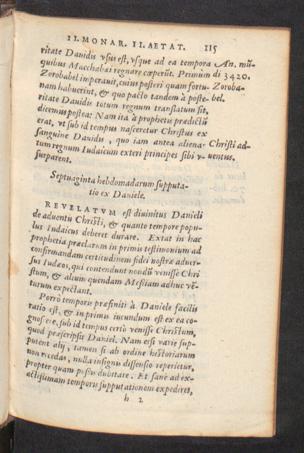 II. MONAR. II. AETAT. 115
ritate Dauidis vsus est, vsque ad ea tempora An. mũ-
quibus Macchabæi regnare cœperũt. Primùm di 3420.
Zorobabel imperauit, cuius posteri quam fortu- Zoroba-
nam habuerint, & quo pacto tandem à poste- bel.
ritate Dauidis totum regnum translatum sit,
dicemus postea: Nam ita à prophetis prædictũ
erat, vt sub id tempus nasceretur Christus ex
sanguine Dauidis, quo iam antea aliena- Christi ad-
tum regnum Iudaicum exteri principes sibi uentus.
surparent.
Septuaginta hebdomadarum supputa-
tio ex Daniele.
REVELATVM est diuinitus Danieli
de aduentu Christi, & quanto tempore popu-
lus Iudaicus deberet durare. Extat in hac
prophetia præclarum in primis testimonium ad
confirmandam certitudinem fidei nostræ aduer-
sus Iudæos, qui contendunt nondũ venisse Chri
stum, & alium quendam Messiam adhuc vẽ-
turum expectant.
Porrò temporis præfiniti à Daniele facilis
ratio est, & in primis iucundum est ex ea co-
gnoscere, sub id tempus certò venisse Christum,
quod præscripsit Daniel. Nam etsi varie sup-
putent alij, tamen si ab ordine historiarum
non recedas, nulla insignis dissensio reperietur,
propter quam possis dubitare. Et sanè ad ex-
actissimam temporis supputationem expediret,
h 2